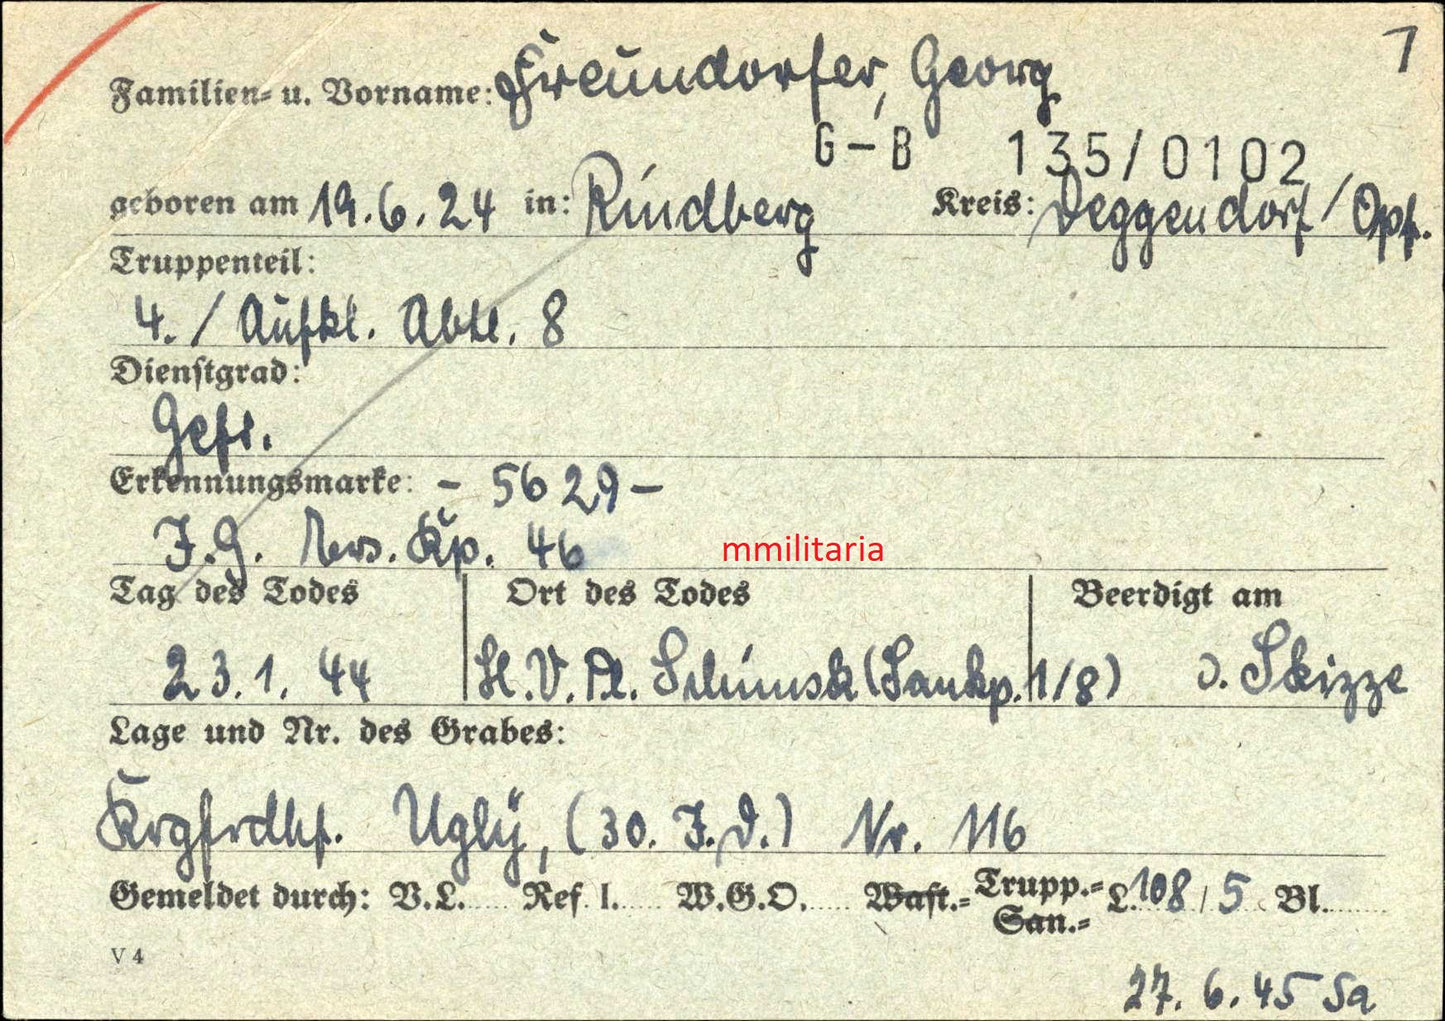 7
Familien- u. Vorname: Freundorfer, Georg
G-B 135/0102
geboren am 19.6.24 in: Rindberg Kreis: Deggendorf/Opf.
Truppenteil:
4./Aufkl. Abtl. 8
Dienstgrad:
Gefr.
Erkennungsmarke: - 5629 -
J.G. Ers. Kp. 46
mmilitaria
Tag des Todes Ort des Todes Beerdigt am
23.1.44 H.V.Pl. (Sankp. 1/8) s. Skizze
Lage und Nr. des Grabes:
Krgfrdhf. Ugly, (30. J.D.) Nr. 116
Gemeldet durch: V.L. Ref I. W.G.O. Wast.- Trupp.- L. 108/5 Bl.
San.-
V 4
27.6.45 Sa